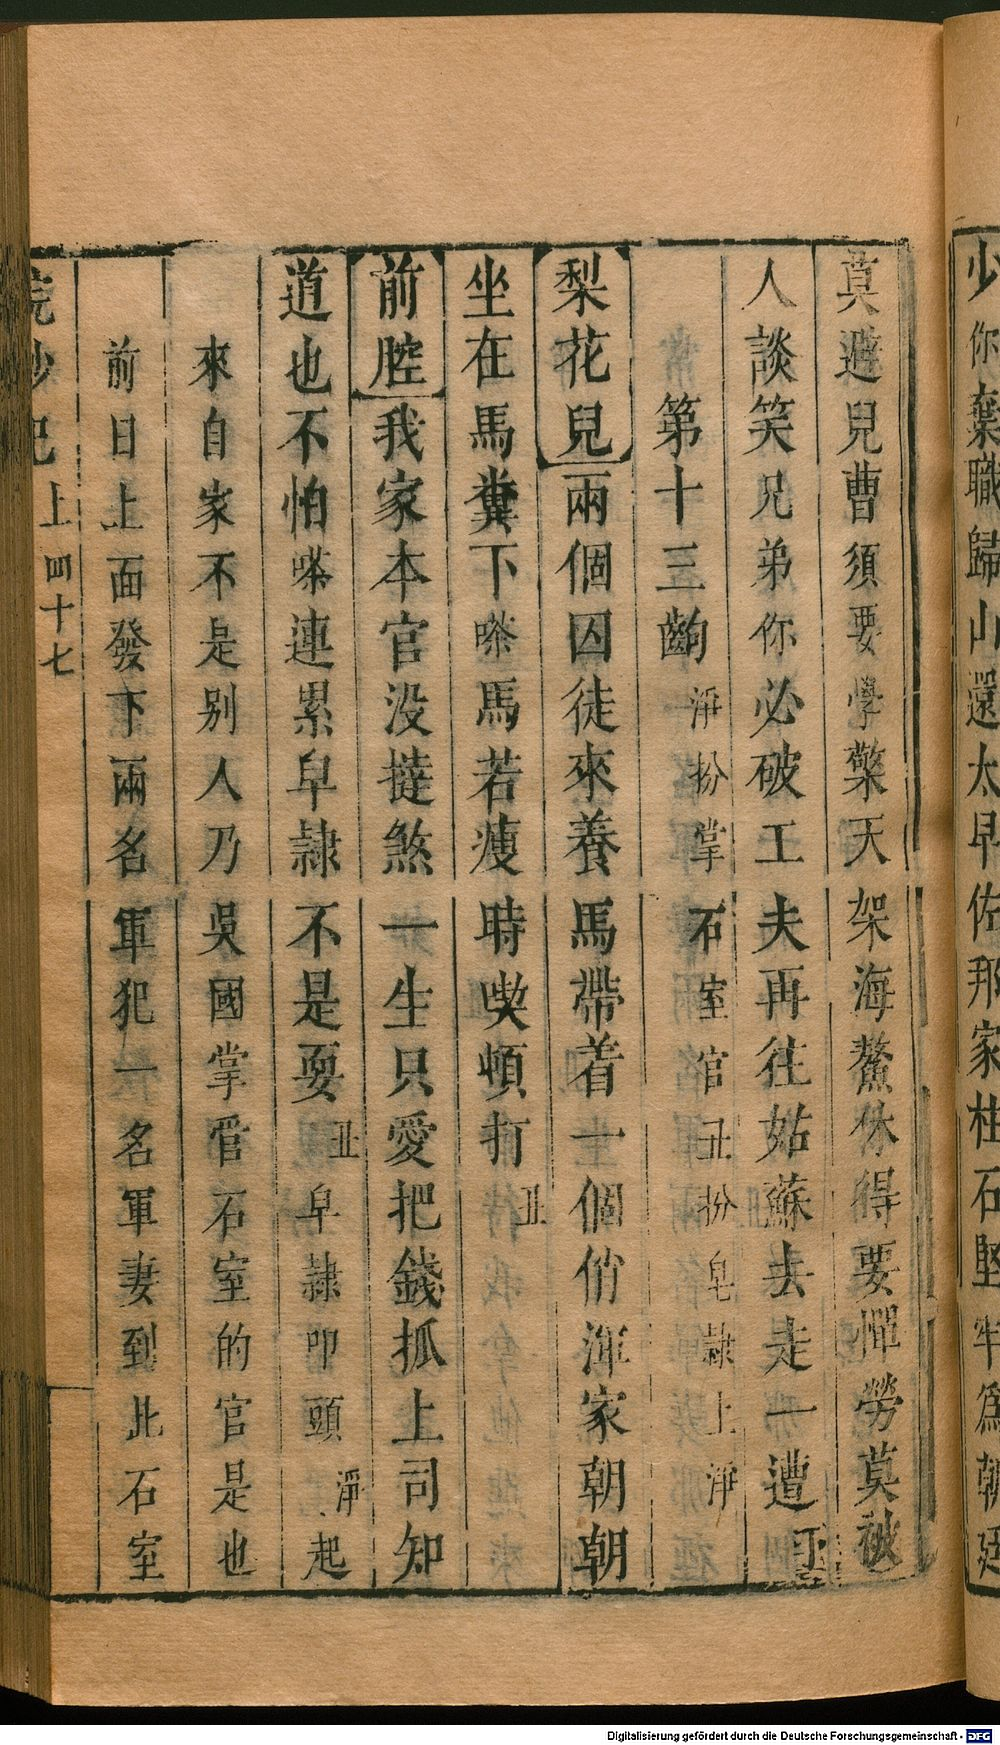 少你棄職歸山還太早佐那家柱石堅牢爲朝廷
莫避兒曹須要學擎天架海鰲休得要憚勞莫被
人談笑兄弟你必破工夫再往姑蘇去走一遭下
第十三齣淨扮掌石室官丑扮皂隸上淨
梨花兒兩個囚徒來養馬帶着一個俏渾家朝朝
坐在馬糞下嗏馬若瘦時喫頓打丑
前腔我家本官没撻煞一生只愛把錢抓上司知
道也不怕嗏連累皁隸不是耍丑皁隸叩頭淨起
來自家不是別人乃吳國掌管石室的官是也
前日上面發下兩名軍犯一名軍妻到此石室
浣紗記上四十七
Digitalisierung gefördert durch die Deutsche Forschungsgemeinschaft - DFG